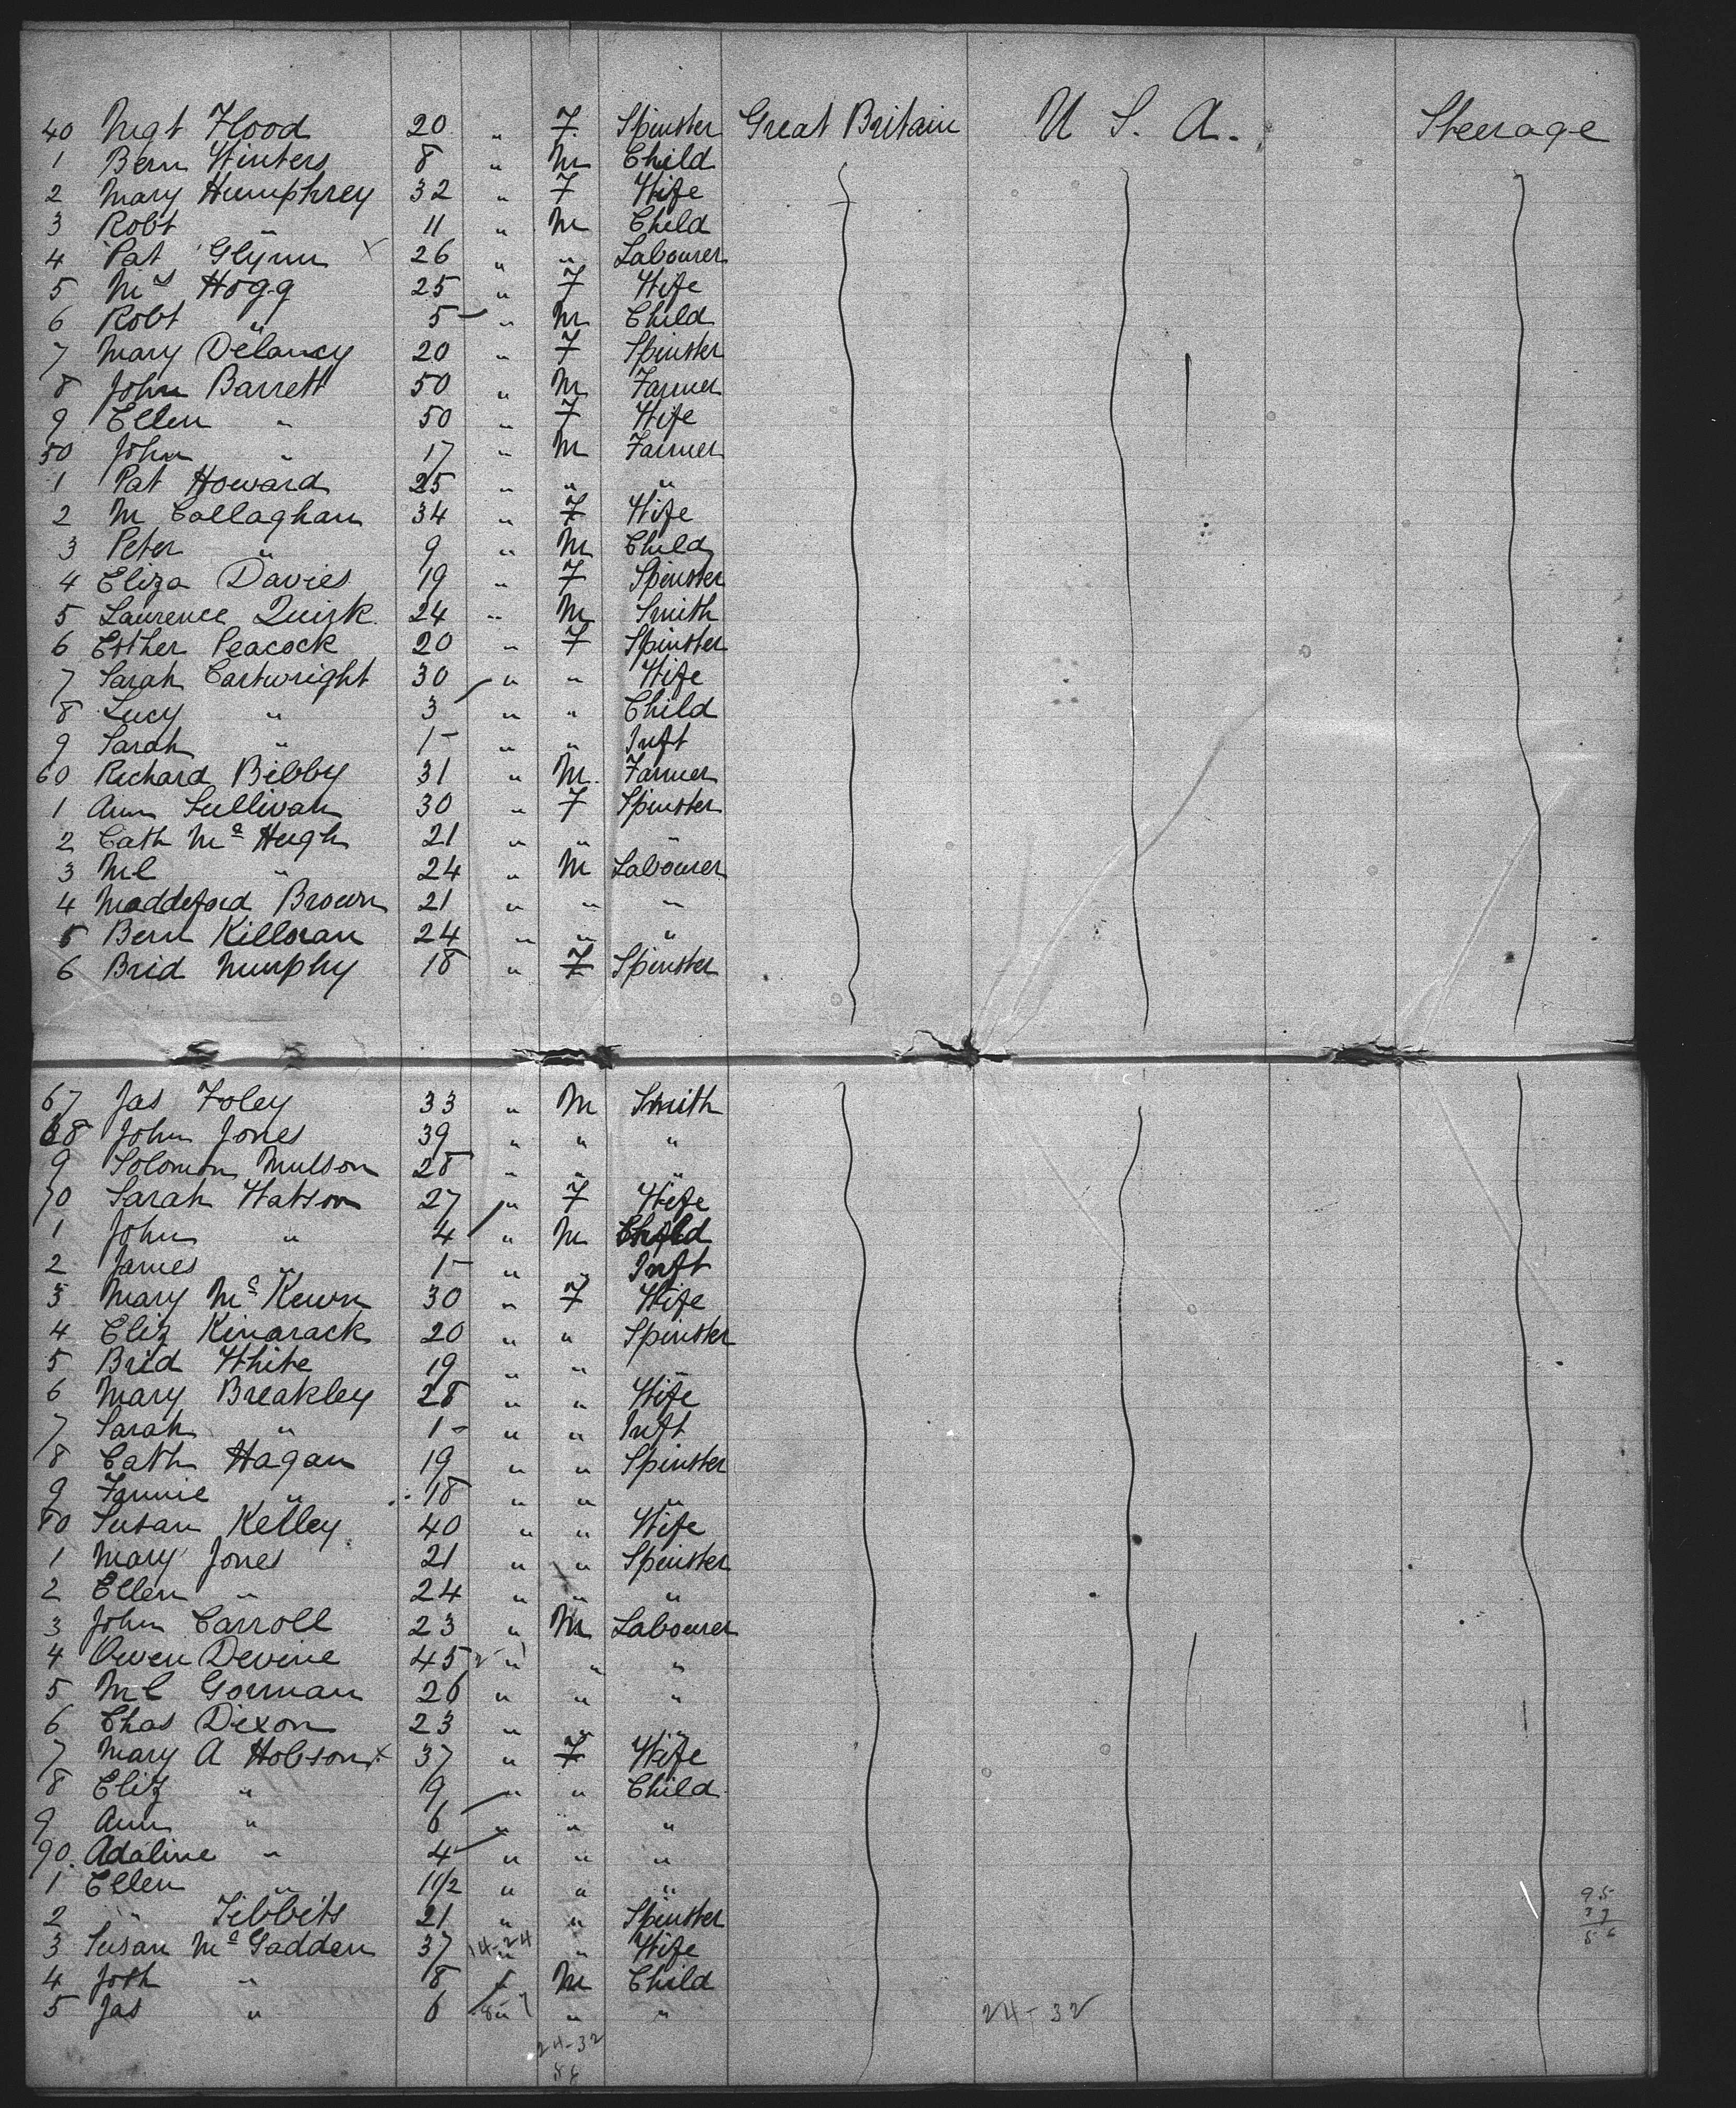 40 Mgt Flood 20 " F Spinster Great Britain U S. A. Steerage
1 Bern Winters 8 " M Child
2 Mary Humphrey 32 " F Wife
3 Robt " 11 " M Child
4 Pat Glynn X 26 " " Labourer
5 Mrs Hogg 25 " F Wife
6 Robt " 5 " M Child
7 Mary Delancy 20 " F Spinster
8 John Barrett 50 " M Farmer
9 Ellen " 50 " F Wife
50 John " 17 " M Farmer
1 Pat Howard 25 " " "
2 M Callaghan 34 " F Wife
3 Peter " 9 " M Child
4 Eliza Davies 19 " F Spinster
5 Laurence Quirk 24 " M Smith
6 Esther Peacock 20 " F Spinster
7 Sarah Cartwright 30 " " Wife
8 Lucy " 3 " " Child
9 Sarah " 1 - " " Inft
60 Richard Bibby 31 " M Farmer
1 Ann Sullivan 30 " F Spinster
2 Cath Mc Hugh 21 " " "
3 Ml " 24 " M Labourer
4 Maddeford Brown 21 " " "
5 Bern Killoran 24 " " "
6 Brid Murphy 18 " F Spinster
67 Jas Foley 33 " M Smith
68 John Jones 39 " " "
9 Solomon Mulson 28 " " "
70 Sarah Watson 27 " F Wife
1 John " 4 " M Child
2 James " 1 - " " Inft
3 Mary Mc Kewn 30 " F Wife
4 Eliz Kinarack 20 " " Spinster
5 Brid White 19 " " "
6 Mary Breakley 28 " " Wife
7 Sarah " 1 - " " Inft
8 Cath Hagan 19 " " Spinster
9 Fannie " 18 " " "
80 Susan Kelley 40 " " Wife
1 Mary Jones 21 " " Spinster
2 Ellen " 24 " " "
3 John Carroll 23 " M Labourer
4 Owen Devine 45 " " "
5 Ml Gorman 26 " " "
6 Chas Dixon 23 " " "
7 Mary A Hobson X 37 " F Wife
8 Eliz " 9 " " Child
9 Ann " 6 " " "
90. Adaline " 4 " " "
1 Ellen " 11/2 " " "
2 " Tibbits 21 " " Spinster 95
3 Susan Mc Gadden 37 14-24 " " Wife
4 Josh " 8 " M Child
5 Jas " 6 " " " 24-32
24-32